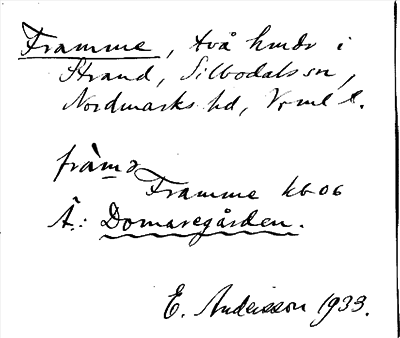 Framme, två hmdr i
Strand, Silbodals sn,
Nordmarks hd, Vrml l.
fràmə
Framme kb 06
Â.: Domaregården.
E. Andersson 1933.